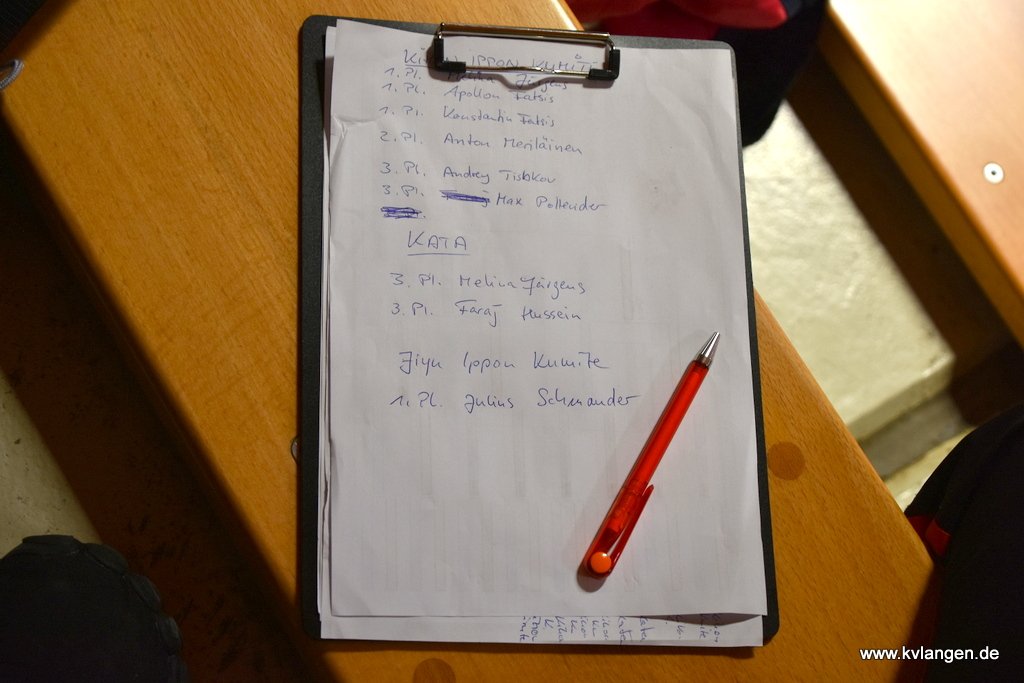 IPPON KUMITE
1. Pl. Melina Jürgens
1. Pl. Apollon Fatsis
1. Pl. Konstantin Fatsis
2. Pl. Anton Meriläinen
3. Pl. Andrey Tisbkov
3. Pl. Max Pollender
KATA
3. Pl. Melina Jürgens
3. Pl. Faraj Hussein
Jiyu Ippon Kumite
1. Pl. Julius Schmander
www.kvlangen.de